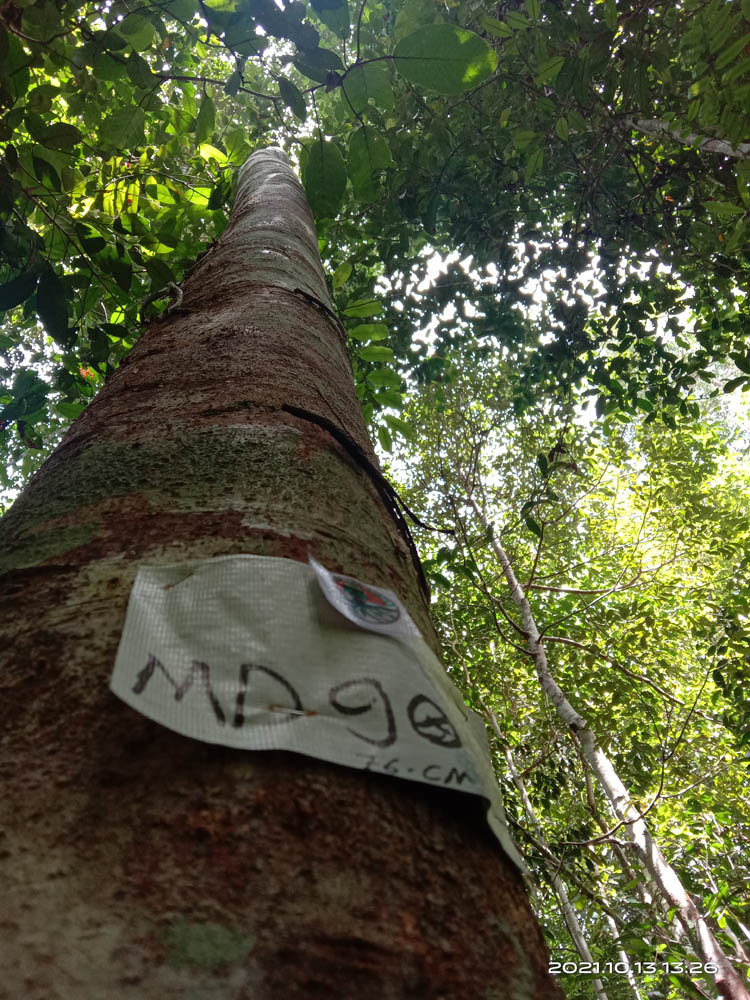 MD 90
76.CM
2021.10.13 13:26